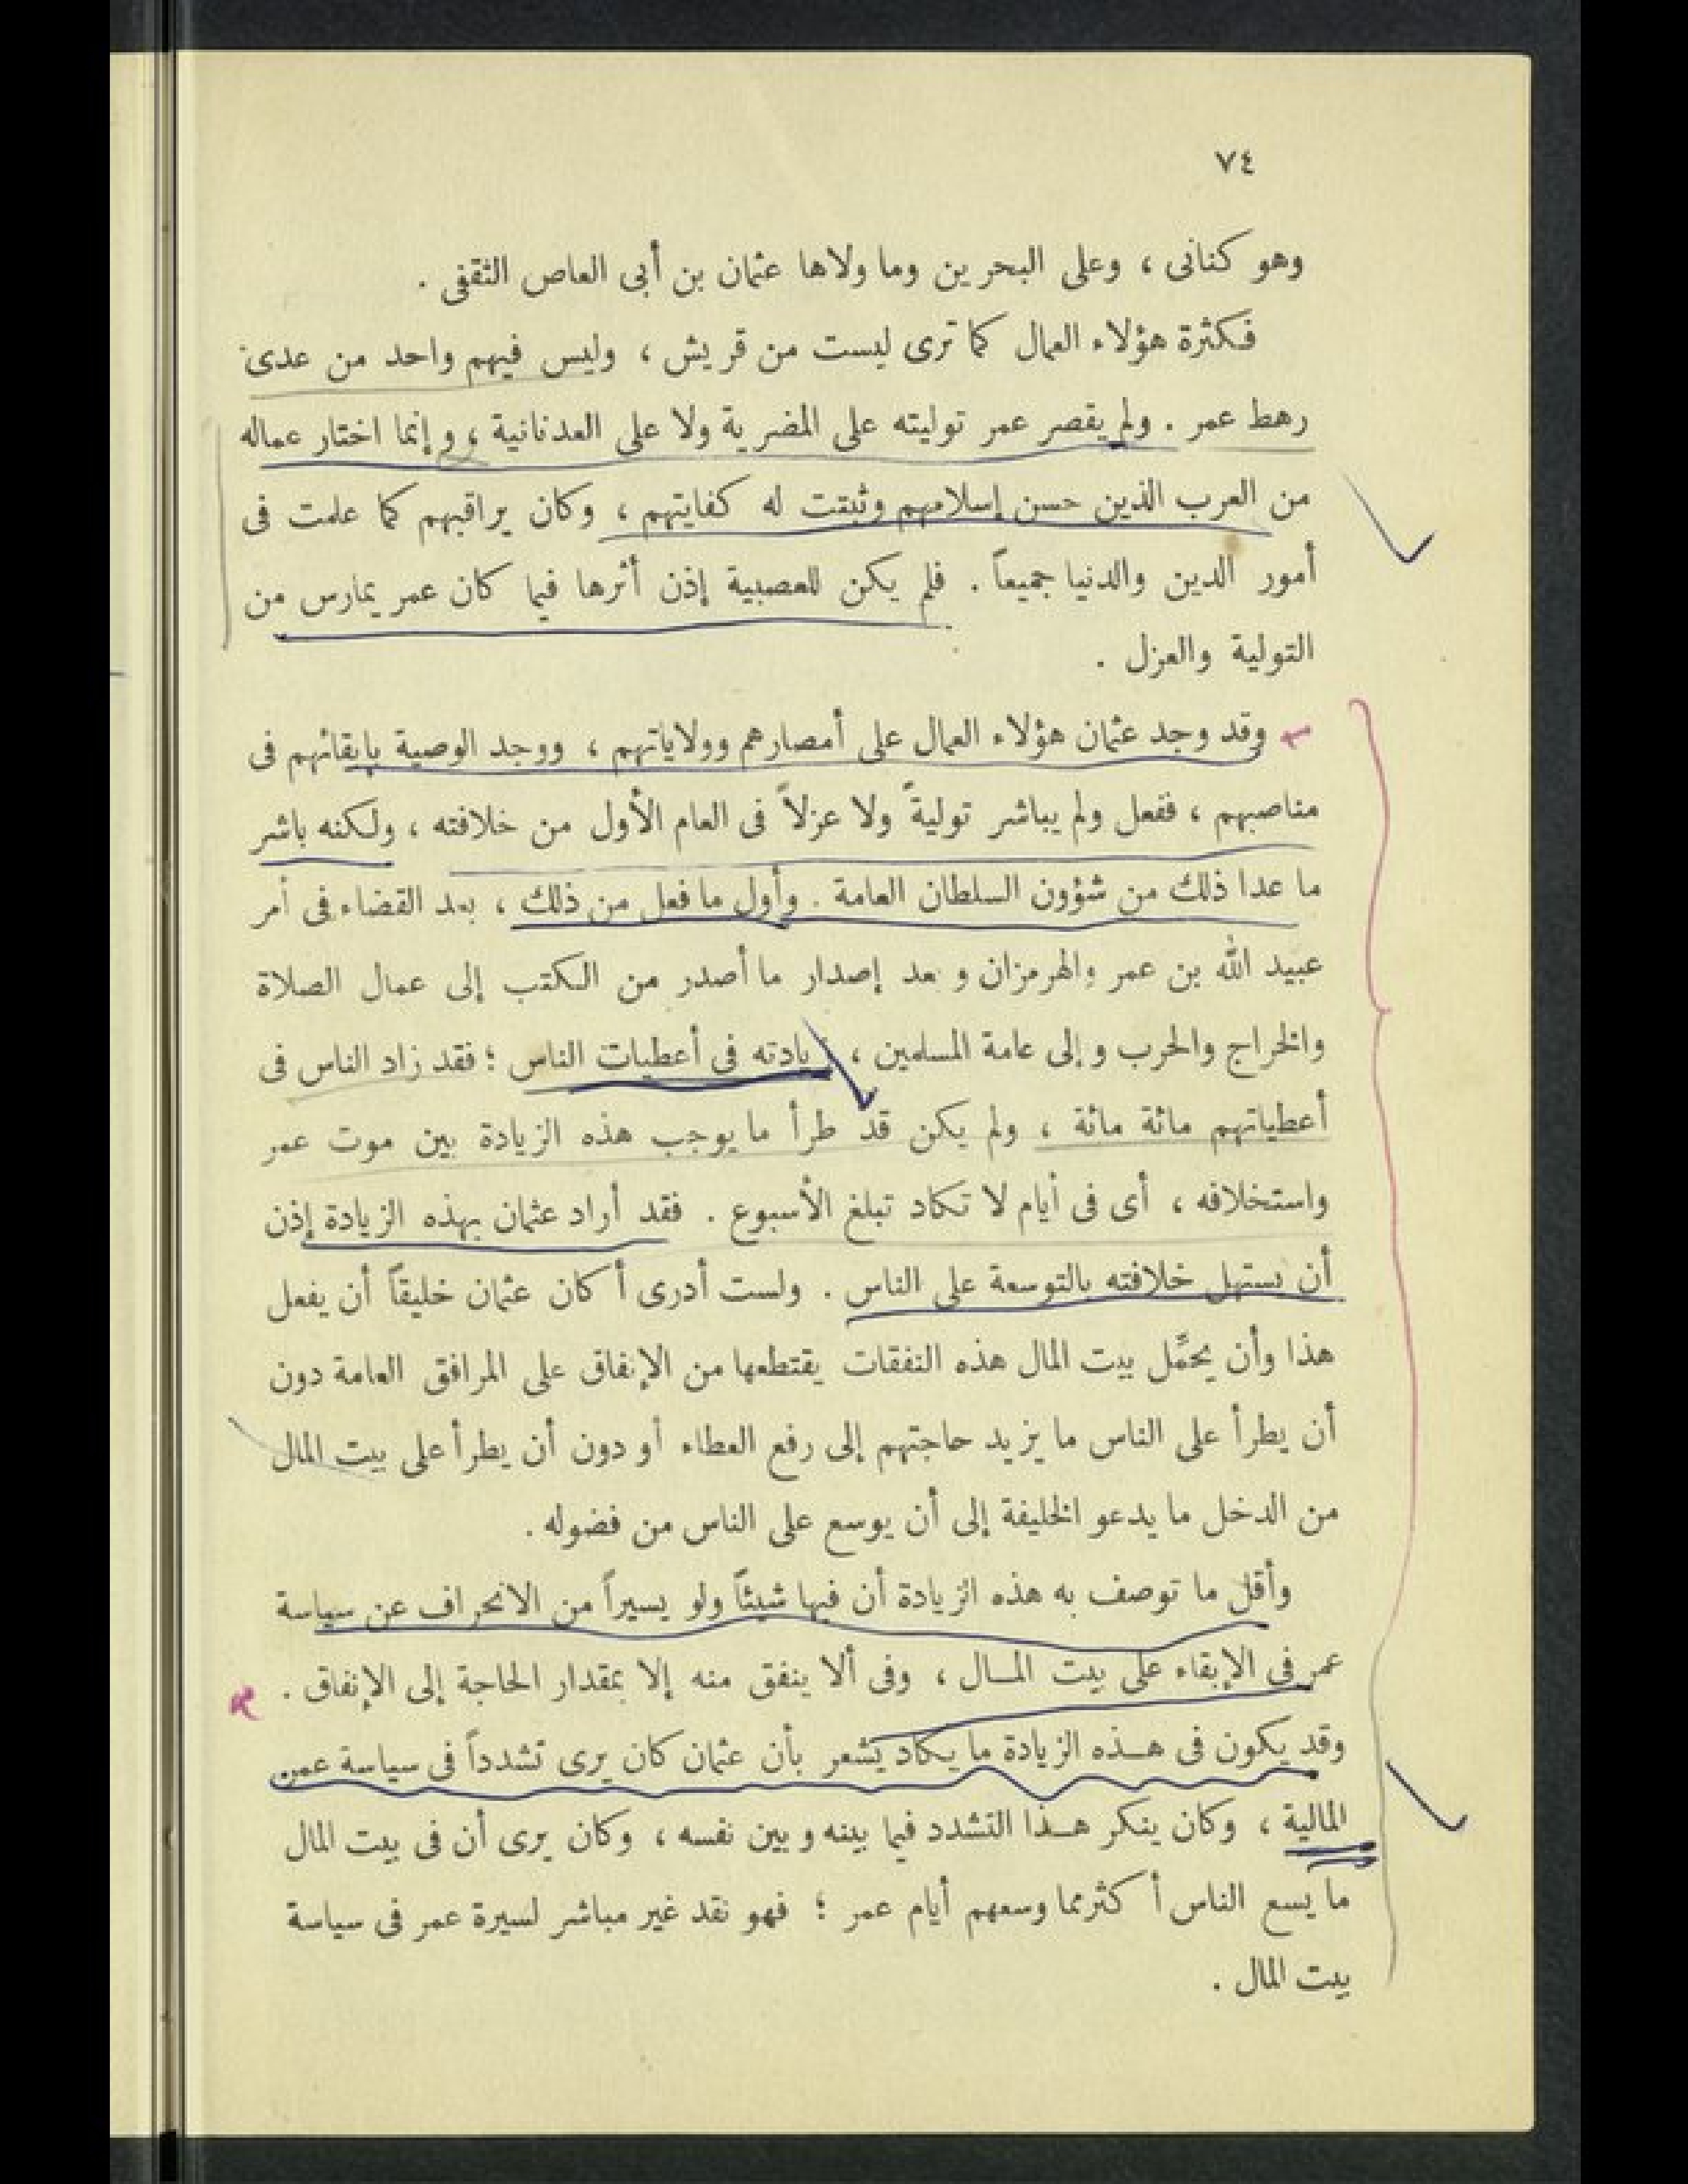 ٧٤
وهو كنانى ، وعلى البحرين وما ولاها عثمان بن أبى العاص الثقفى .
فكثرة هؤلاء العمال كما ترى ليست من قريش ، وليس فيهم واحد من عدى
رهط عمر . ولم يقصر عمر توليته على المضرية ولا على العدنانية ، وإنما اختار عماله
من العرب الذين حسن إسلامهم وثبتت له كفايتهم ، وكان يراقبهم كما علمت فى
أمور الدين والدنيا جميعاً . فلم يكن للعصبية إذن أثرها فيما كان عمر يمارس من
التولية والعزل .
وقد وجد عثمان هؤلاء العمال على أمصارهم وولاياتهم ، ووجد الوصية بإبقائهم فى
مناصبهم ، ففعل ولم يباشر توليةً ولا عزلاً فى العام الأول من خلافته ، ولكنه باشر
ما عدا ذلك من شؤون السلطان العامة . وأول ما فعل من ذلك ، بعد القضاء فى أمر
عبيد الله بن عمر والهرمزان وبعد إصدار ما أصدر من الكتب إلى عمال الصلاة
والخراج والحرب وإلى عامة المسلمين ، زيادته فى أعطيات الناس ؛ فقد زاد الناس فى
أعطياتهم مائة مائة ، ولم يكن قد طرأ ما يوجب هذه الزيادة بين موت عمر
واستخلافه ، أى فى أيام لا تكاد تبلغ الأسبوع . فقد أراد عثمان بهذه الزيادة إذن
أن يستهل خلافته بالتوسعة على الناس . ولست أدرى أكان عثمان خليقاً أن يفعل
هذا وأن يحمِّل بيت المال هذه النفقات يقتطعها من الإنفاق على المرافق العامة دون
أن يطرأ على الناس ما يزيد حاجتهم إلى رفع العطاء أو دون أن يطرأ على بيت المال
من الدخل ما يدعو الخليفة إلى أن يوسع على الناس من فضوله .
وأقل ما توصف به هذه الزيادة أن فيها شيئاً ولو يسيراً من الانحراف عن سياسة
عمر فى الإبقاء على بيت المــال ، وفى ألا ينفق منه إلا بمقدار الحاجة إلى الإنفاق .
وقد يكون فى هــذه الزيادة ما يكاد يشعر بأن عثمان كان يرى تشدداً فى سياسة عمر
المالية ، وكان ينكر هــذا التشدد فيما بينه وبين نفسه ، وكان يرى أن فى بيت المال
ما يسع الناس أكثر مما وسعهم أيام عمر ؛ فهو نقد غير مباشر لسيرة عمر فى سياسة
بيت المال .